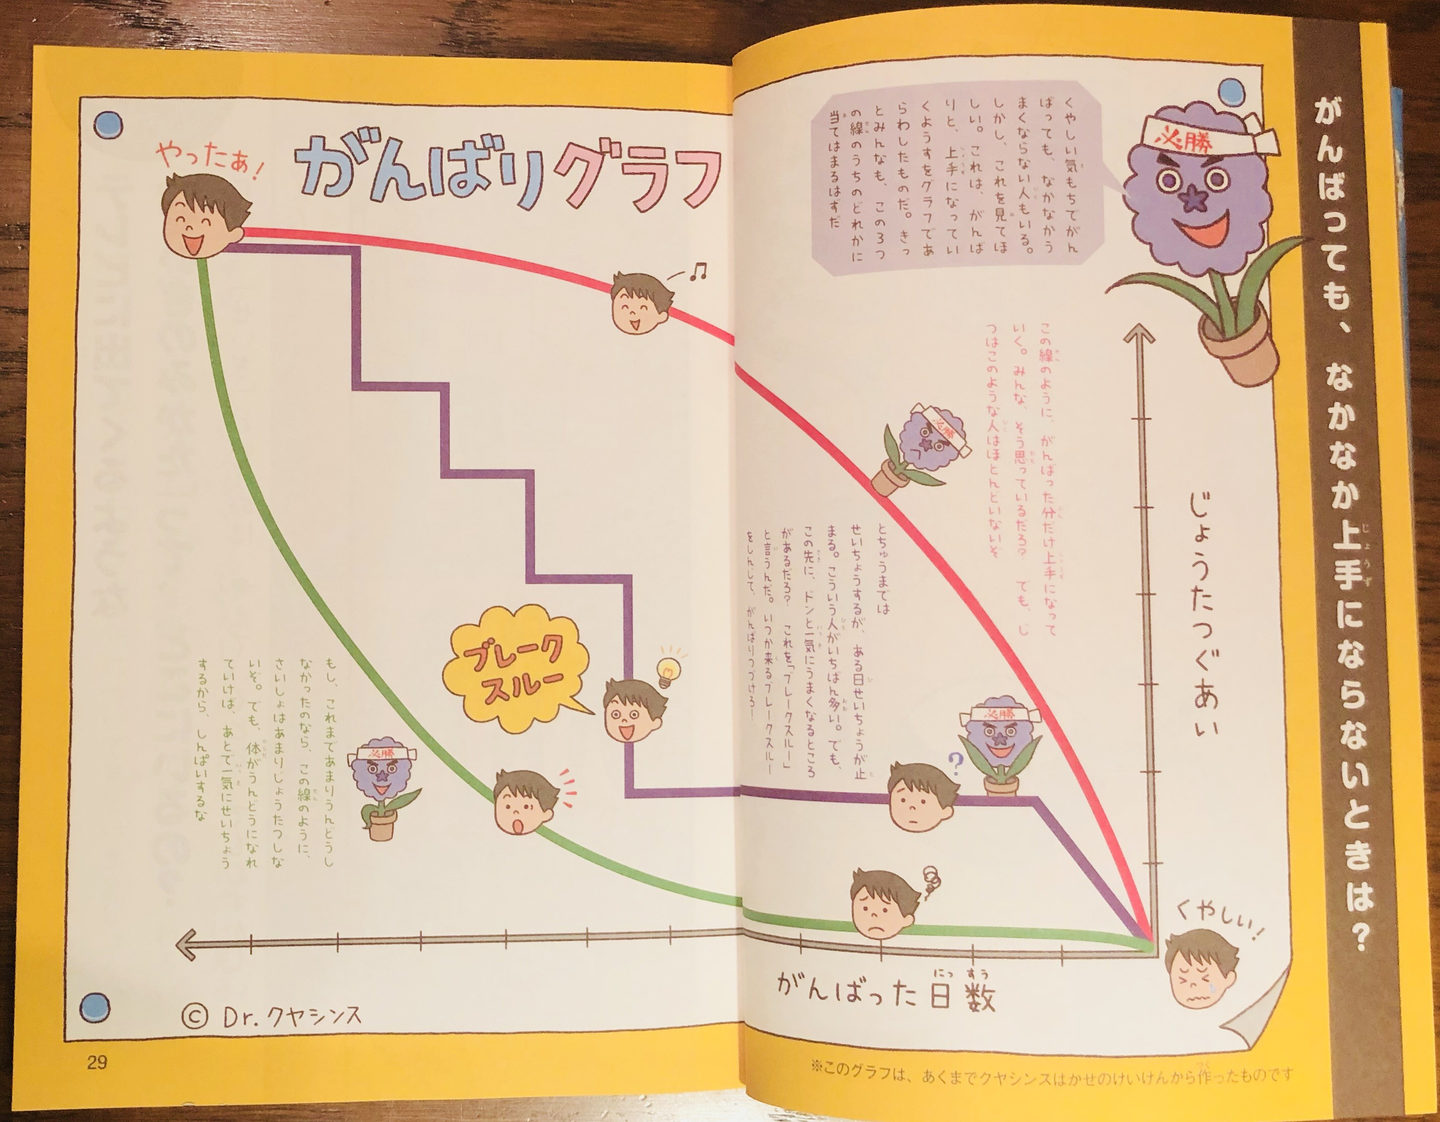 がんばっても、なかなか上手にならないときは?
必勝
くやしい気もちでがん
ばっても、なかなかう
まくならない人もいる。
しかし、これを見てほ
しい。これは、がんば
りと、上手になってい
くようすをグラフであ
らわしたものだ。きっ
とみんなも、この3つ
の線のうちのどれかに
当てはまるはずだ
がんばりグラフ
やったぁ!
じょうたつぐあい
この線のように、がんばった分だけ上手になって
いく。みんな、そう思っているだろ? でも、じ
つはこのような人はほとんどいないぞ
必勝
とちゅうまでは
せいちょうするが、ある日せいちょうが止
まる。こういう人がいちばん多い。でも、
この先に、ドンと一気にうまくなるところ
があるだろ? これを「ブレークスルー」
と言うんだ。いつか来るブレークスルー
をしんじて、がんばりつづけろ!
必勝
?
ブレーク
スルー
もし、これまであまりうんどうし
なかったのなら、この線のように、
さいしょはあまりじょうたつしな
いぞ。でも、体がうんどうになれ
ていけば、あとで一気にせいちょう
するから、しんぱいするな
必勝
くやしい!
がんばった日数
© Dr.クヤシンス
29
※このグラフは、あくまでクヤシンスはかせのけいけんから作ったものです